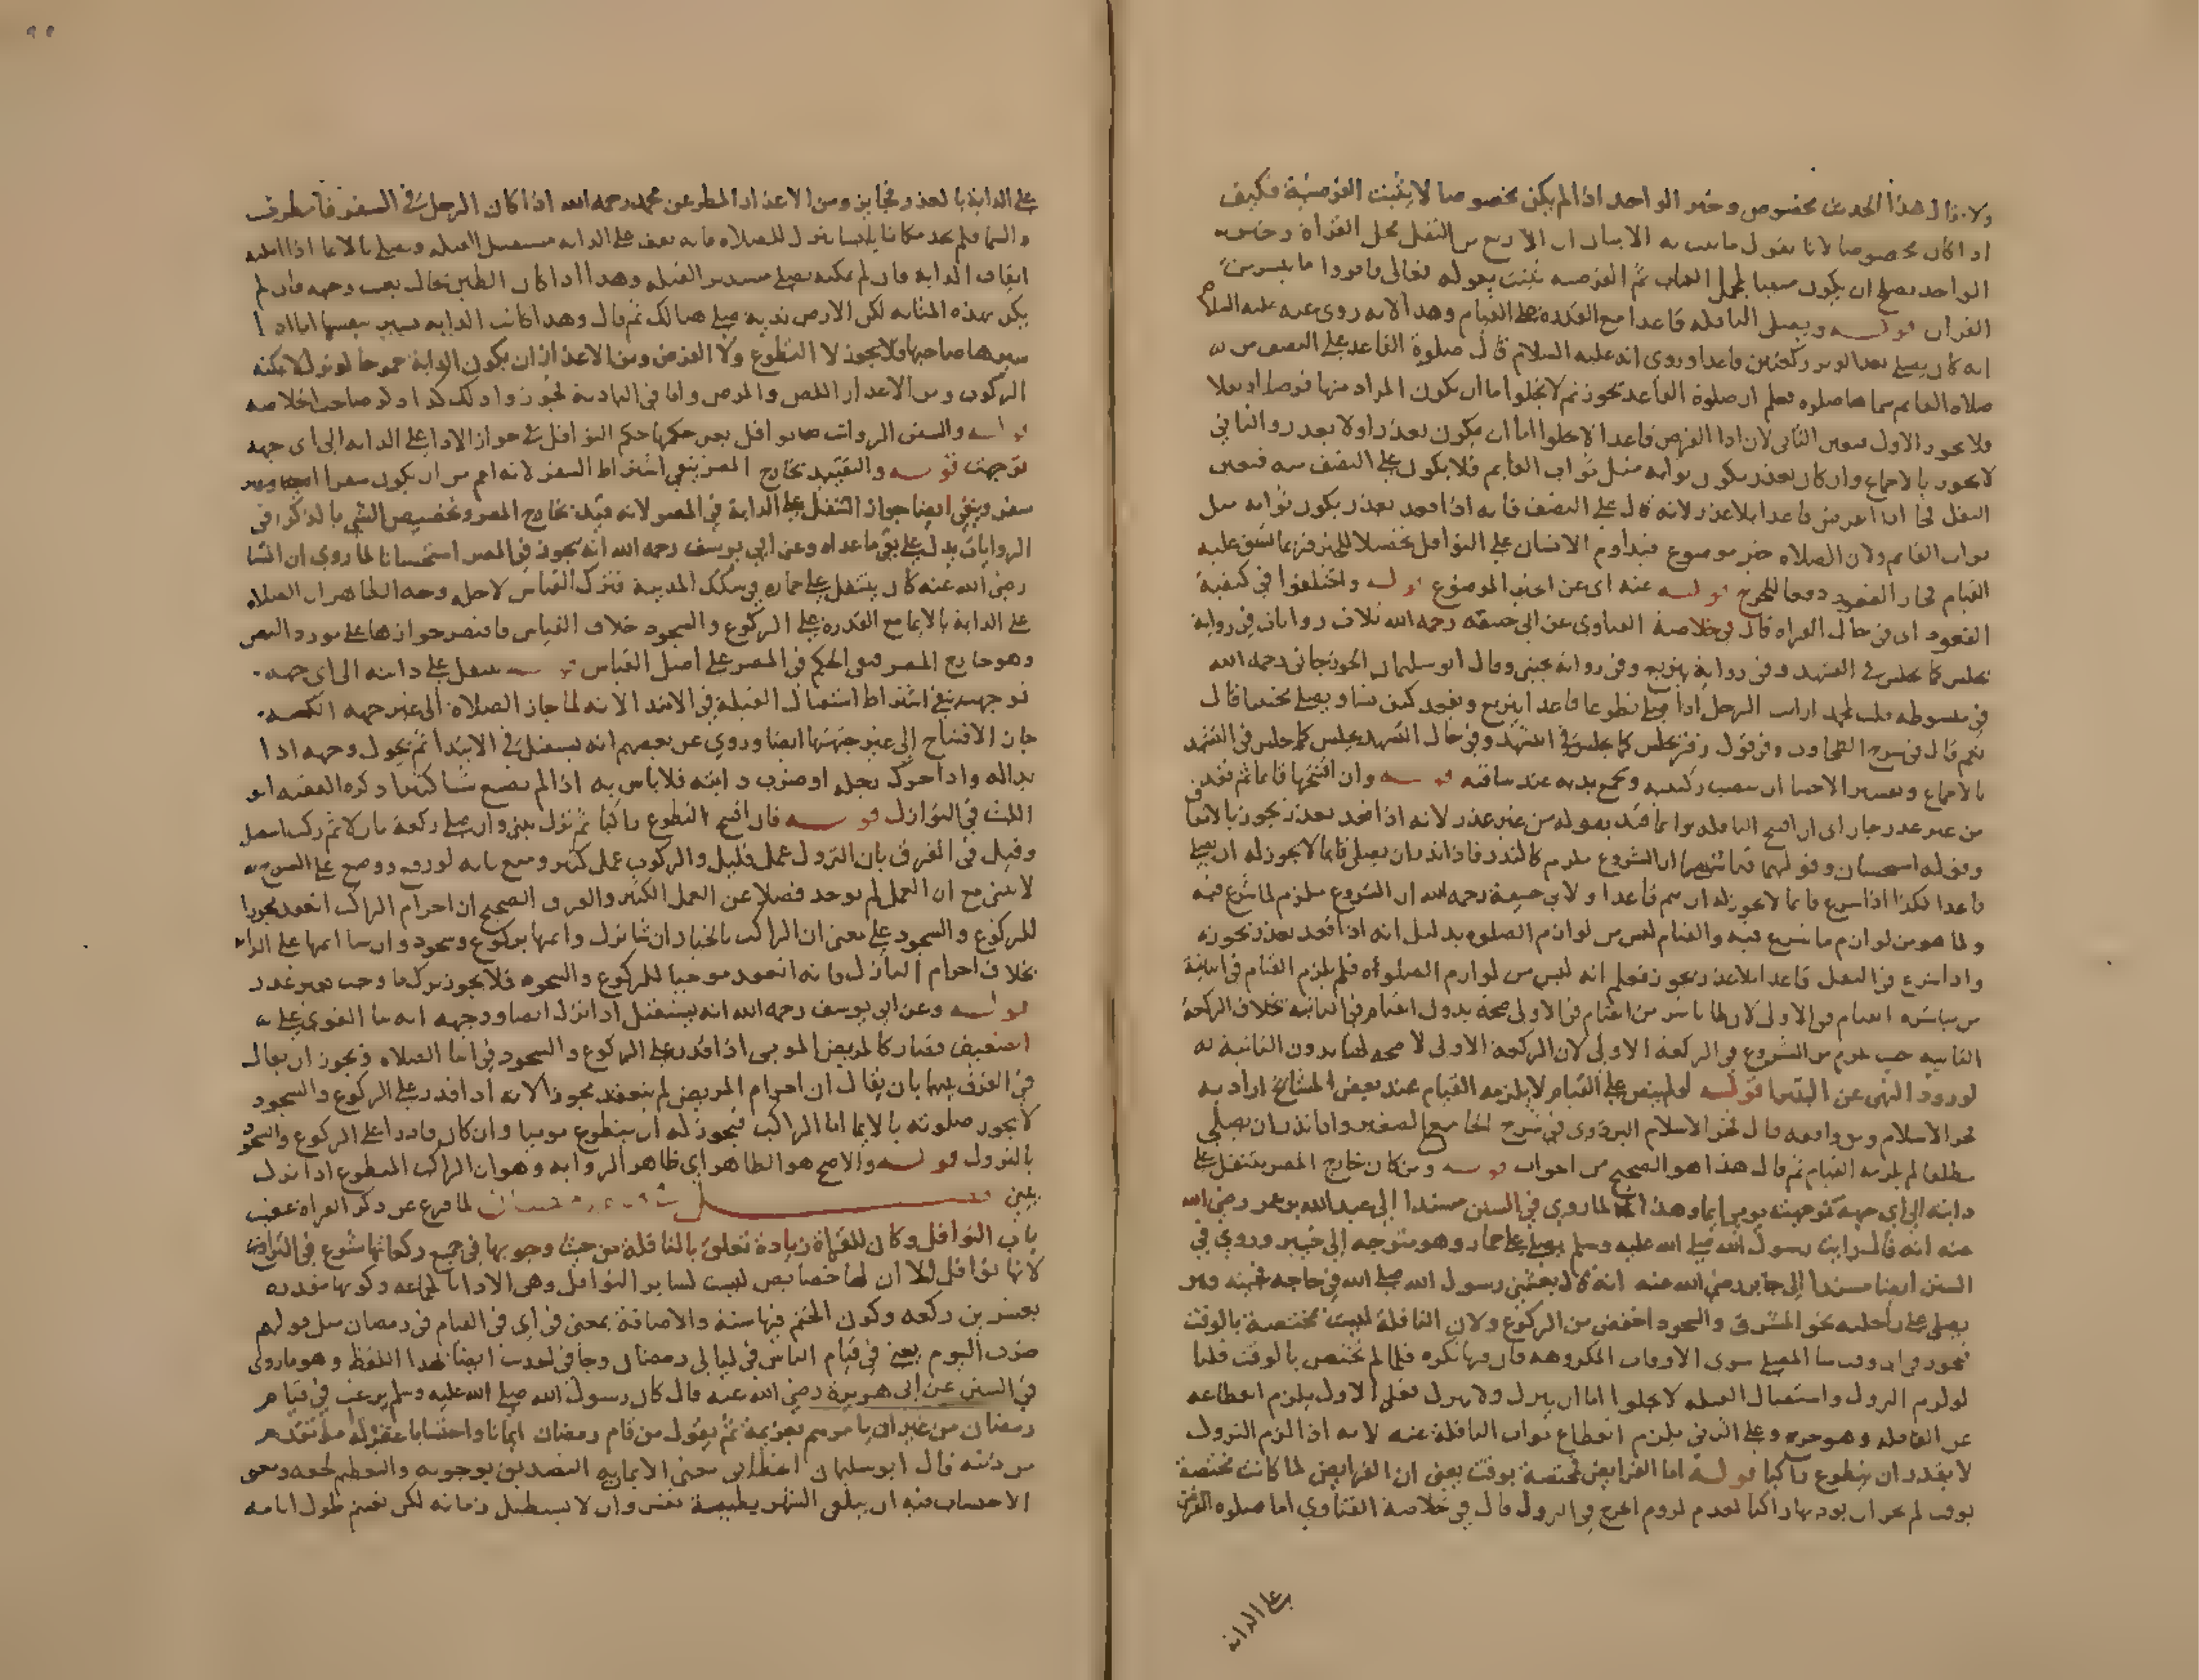 ولان هذا الحديث مخصوص وخبر الواحد اذا لم يكن مخصوصا لا يثبت الفرضية فكيف
اذا كان مخصوصا لانا نقول ما ثبت به الاتيان الاربع من النفل محل القراة وخبر
الواحد يصلح ان يكون مبينا لمجمل الكتاب ثم الفرضيه ثبتت بقوله تعالى فاقروا ما تيسر من
القران قولــه ويصلى النافله قاعدا مع القدره على القيام وهذا لانه روى عنه عليه السلام
انه كان يصلى بعد الوتر ركعتين قاعدا وروى انه عليه السلام قال صلوة القاعد على النصف من
صلاه القايم سماها صلوه فعلم ان صلوة القاعد تجوز ثم لا يخلوا ما ان يكون المراد منها فرضا او نفلا
فلا يجوز الاول فتعين الثانى لان اذا الفرض قاعدا لا يخلوا اما ان يكون بعذر او لا بعذر والثانى
لا يجوز بالاجماع وان كان بعذر يكون ثوابه مثل ثواب القايم فلا يكون على النصف منه فتعين
النفل لا يقال المريض قاعدا بلا عذر لانه قال على النصف فانه اذا قعد بعذر يكون ثوابه مثل
ثواب القايم ولان الصلاه خير موضوع فيداوم الانسان على النوافل تحصيلا للخير فربما يشق عليه
القيام فجاز القعود دفعا للحرج قولــه عنه اى عن الموضوع قولــه واختلفوا فى كيفية
القعود اى فى حال القراه قال فى خلاصة الفتاوى عن ابى حنيفه رحمه الله ثلاث روايات فى رواية
يجلس كما يجلس فى التشهد وفى رواية يتربع وفى رواية يحتبى وقال ابو سليمان الجوزجانى رحمه الله
فى مبسوطه قلت لمحمد ارايت الرجل اذا صلى تطوعا قاعدا ايتربع ويقعد كيف شا ويصلى محتبيا قال
نعم قال فى شرح الطحاوى وفى قول زفر يجلس كما يجلس فى التشهد وفى حال التشهد يجلس كما يجلس فى التشهد
بالاجماع وتفسير الاحتبا ان ينصب ركبتيه ويجمع يديه عند ساقيه قولــه وان افتتحها قايما ثم قعد
من غير عذر جاز اى ان افتتح النافله قايما قيد بقوله من غير عذر لانه اذا قعد بعذر يجوز بالاتفاق
وقوله استحسان وقولهما قياس ان الشروع ملزم كالنذر فاذا نذر ان يصلى قايما لا يجوز له ان يصلى
قاعدا فكذا اذا شرع قايما لا يجوز له ان يتم قاعدا ولابى حنيفة رحمه الله ان الشروع ملزم لما شرع فيه
ولما هو من لوازم ما شرع فيه والقيام ليس من لوازم الصلوه بدليل انه اذا قعد بعذر تجوز
واذا شرع فى النفل قاعدا بلا عذر يجوز فعلم انه ليس من لوازم الصلواة فلم يلزم القيام فى الثانية
من مباشرة القيام فى الاولى لان لما باشر من القيام فى الاولى صحة بدون القيام فى الثانيه بخلاف الركعة
الثانيه حيث يلزم من الشروع فى الركعة الاولى لان الركعة الاولى لا صحه لها بدون الثانية
لورود النهى عن البتيرا قولــه لو لم ينص على القيام لا يلزمه القيام عند بعض المشايخ اراد به
فخر الاسلام ومن وافقه قال فخر الاسلام البزدوى فى شرح الجامع الصغير واذا نذر ان يصلى
مطلقا لم يلزمه القيام ثم قال هذا هو الصحيح من الجواب قولــه ومن كان خارج المصر يتنفل على
دابته الى اى جهة توجهت يومى ايما وهذا لما روى فى السنن مسندا الى عبد الله بن عمر رضى الله
عنه انه قال رايت رسول الله صلى الله عليه وسلم يصلى على حمار وهو متوجه الى خيبر وروى فى
السنن ايضا مسندا الى جابر رضى الله عنه انه قال بعثنى رسول الله صلى الله فى حاجه فجيته وهو
يصلى على راحلته نحو المشرق والسجود اخفض من الركوع ولان النافلة ليست مختصة بالوقت
فتجوز فى اى وقت شا المصلى سوى الاوقات المكروهه فان فيها تكره فلما لم تختص بالوقت قلنا
لو لزم النزول واستقبال القبله لا يخلوا اما ان ينزل ولا ينزل فعلى الاول يلزم انقطاعه
عن القافله وهو حرج وعلى الثانى يلزم انقطاع ثواب النافلة عنه لانه اذا لزم النزول
لا يقدر ان يتطوع راكبا قولــه اما الفرايض مختصة بوقت يعنى ان الفرايض لما كانت مختصة
بوقت لم يجز ان يوديها راكبا لعدم لزوم الحرج فى النزول قال فى خلاصة الفتاوى اما صلوه الفرض
على الدابه
على الدابة بالعذر فجايز ومن الاعذار المطر عن محمد رحمه الله اذا كان الرجل فى السفر فامطرت
السما فلم يجد مكانا يابسا ينزل للصلاه فانه يقف على الدابه مستقبل القبله ويصلى بالايما اذا امكنه
ايقاف الدابة فان لم يمكنه يصلى مستدبر القبله وهذا اذا كان الطين بحال يغيب وجهه فان لم
يكن بهذه المثابه لكن الارض ندية صلى هنالك ثم قال وهذا اذا كانت الدابه تسير بنفسها اما اذا
سيرها صاحبها فلا يجوز لا التطوع ولا الفرض ومن الاعذار ان يكون الدابة جموحا لو نزل لا يمكنه
الركوب ومن الاعذار اللص والمرض واما فى البادية تجوز وذلك كذا ذكر صاحب الخلاصه
قولــه والسنن الرواتب نوافل يعنى حكمها حكم النوافل فى جواز الادا على الدابه الى اى جهة
توجهت قولــه والتقييد بخارج المصر ينفى اشتراط السفر لانه اعم من ان يكون سفرا او غير
سفر وينفى ايضا جواز التنفل على الدابة فى المصر لانه قيد بخارج المصر وتخصيص الشى بالذكر فى
الروايات يدل على نفى ما عداه وعن ابى يوسف رحمه الله انه يجوز فى المصر استحسانا لما روى ان
رضى الله عنه كان يتنفل على حماره فى سكك المدينة فترك القياس لاجله وجه الظاهر ان الصلاه
على الدابة بالايما مع القدره على الركوع والسجود خلاف القياس فاقتصر جوازها على مورد النص
وهو خارج المصر فبقى الحكم فى المصر على اصل القياس قولــه يتنفل على دابته الى اى جهه
توجهت ينفى اشتراط استقبال القبلة فى الابتدا لانه لما جاز الصلاة الى غير جهه الكعبه
جاز الافتتاح الى غير جهتها ايضا وروى عن بعضهم انه يستقبل فى الابتدا ثم يحول وجهه اذا
بدا له واذا حرك رجله او ضرب دابته فلا باس به اذا لم يصنع شيا كثيرا ذكره الفقيه ابو
الليث فى النوازل قولــه فان افتتح التطوع راكبا ثم نزل يبنى وان صلى ركعة نازلا ثم ركب استقبل
وقيل فى الفرق بان النزول عمل قليل والركوب عمل كثير ومنع بانه لو رفع ووضع على السرج
لا يبنى مع ان العمل لم يوجد فضلا عن العمل الكثير والفرق الصحيح ان احرام الراكب انعقد مجوزا
للركوع والسجود على معنى ان الراكب بالخيار ان شا نزل واتمها بركوع وسجود وان شا اتمها على الدابه
بخلاف احرام النازل فانه انعقد موجبا للركوع والسجود فلا يجوز ترك ما وجب بغير عذر
قولــه وعن ابى يوسف رحمه الله انه يستقبل اذا نزل ايضا ووجهه انه بنا القوى على
الضعيف فصار كالمريض المومى اذا قدر على الركوع والسجود فى اثنا الصلاه ويجوز ان يقال
فى الفرق بينهما بان يقال ان احرام المريض لم ينعقد مجوزا لانه اذا قدر على الركوع والسجود
لا يجوز صلوته بالايما اما الراكب فيجوز له ان يتطوع موميا وان كان قادرا على الركوع والسجود
بالنزول قولــه والاصح هو الظاهر اى ظاهر الروايه وهو ان الراكب المتطوع اذا نزل
يبنى فصــل لما فرغ عن ذكر القراة عقيب
باب النوافل وكان للقراة زيادة تعلق بالنافلة من حيث وجوبها فى جميع ركعاتها شرع فى التراويح
لانها نوافل الا ان لها خصايص ليست لساير النوافل وهى الادا بالجماعه وكونها مقدره
بعشرين ركعه وكون الختم فيها سنة والاضافة بمعنى فى اى فى القيام فى رمضان مثل قولهم
ضرب اليوم يعنى فى قيام الناس فى ليالى رمضان وجا فى الحديث ايضا بهذا اللفظ وهو ما روى
فى السنن عن ابى هريرة رضى الله عنه قال كان رسول الله صلى الله عليه وسلم يرغب فى قيام
رمضان من غير ان يامرهم بعزيمة ثم يقول من قام رمضان ايمانا واحتسابا غفر له ما تقدم
من ذنبه قال ابو سليمان الخطابى معنى الايمان التصديق بوجوبه والتعظيم لحقه ومعنى
الاحتساب فيه ان يتلقى الشهر بطيبة نفس وان لا يستطيل زمانه لكن يغتنم طول ايامه